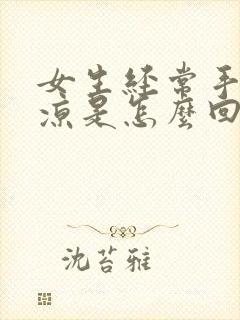 女生経常手
凉是怎麼回
沈苔雅